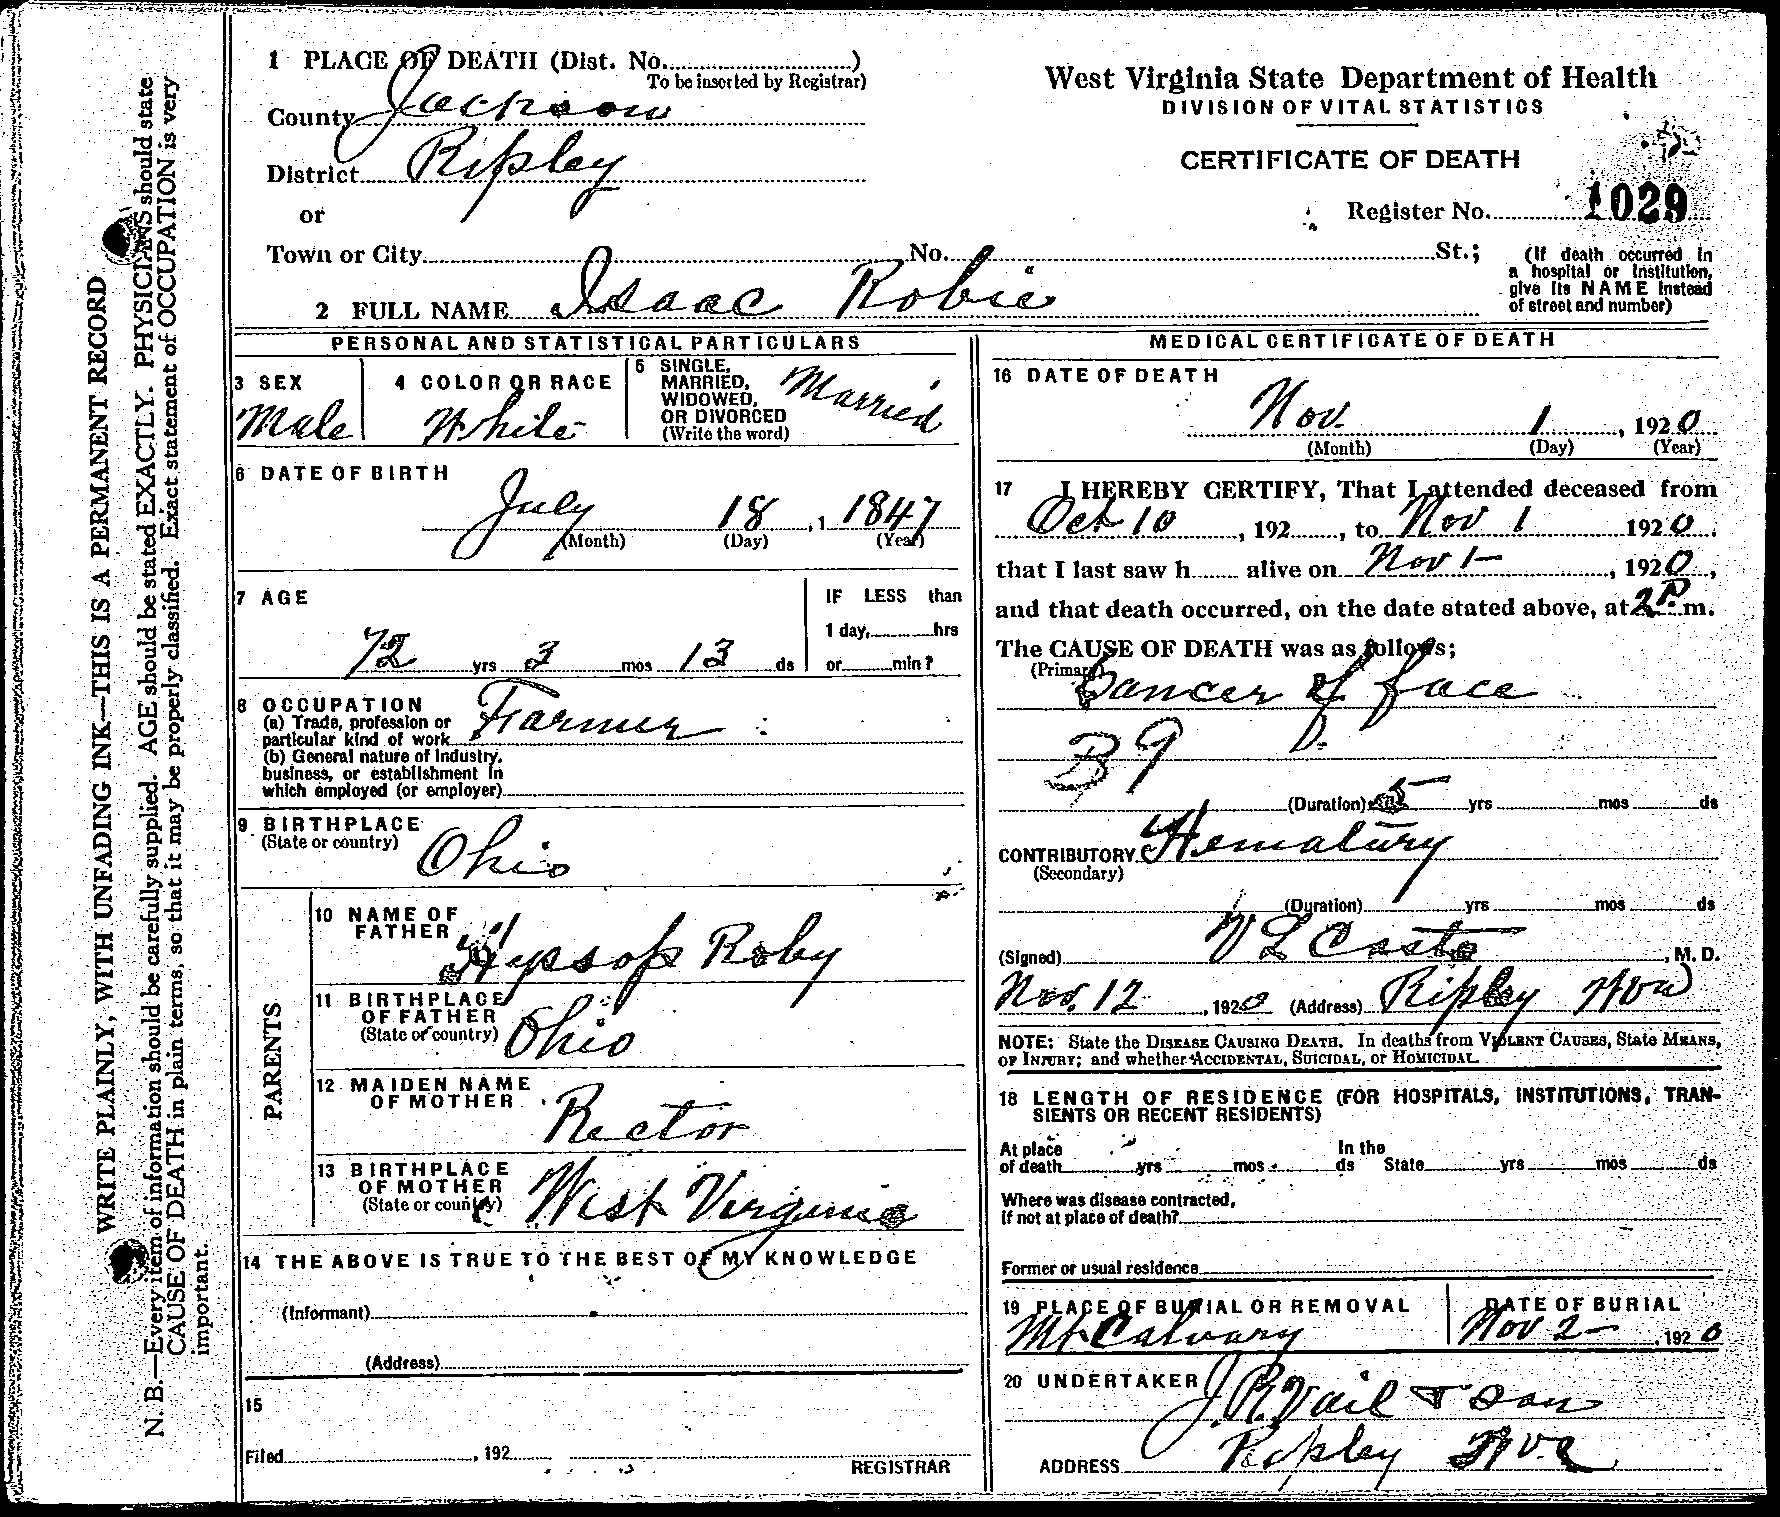 1 PLACE OF DEATH (Dist. No. )
To be inserted by Registrar)
County Jackson
District Ripley
or
Town or City No. St.;
(If death occurred in
a hospital or institution,
give its NAME instead
of street and number)
2 FULL NAME Isaac Robie
West Virginia State Department of Health
DIVISION OF VITAL STATISTICS
CERTIFICATE OF DEATH
Register No. 1029
PERSONAL AND STATISTICAL PARTICULARS
3 SEX
Male
4 COLOR OR RACE
White
5 SINGLE,
MARRIED,
WIDOWED,
OR DIVORCED
(Write the word)
Married
6 DATE OF BIRTH
July 18 , 1 1847
(Month) (Day) (Year)
7 AGE
72 yrs 3 mos 13 ds
IF LESS than
1 day, hrs
or min?
8 OCCUPATION
(a) Trade, profession or
particular kind of work Farmer
(b) General nature of industry,
business, or establishment in
which employed (or employer)
9 BIRTHPLACE
(State or country) Ohio
PARENTS
10 NAME OF
FATHER Hyssop Roby
11 BIRTHPLACE
OF FATHER
(State or country) Ohio
12 MAIDEN NAME
OF MOTHER Rector
13 BIRTHPLACE
OF MOTHER
(State or country) West Virginia
14 THE ABOVE IS TRUE TO THE BEST OF MY KNOWLEDGE
(Informant)
(Address)
15
Filed , 192
REGISTRAR
MEDICAL CERTIFICATE OF DEATH
16 DATE OF DEATH
Nov. 1 , 1920
(Month) (Day) (Year)
17 I HEREBY CERTIFY, That I attended deceased from
Oct 10 , 192 , to Nov 1 1920 .
that I last saw h alive on Nov 1 , 1920 ,
and that death occurred, on the date stated above, at 2P. m.
The CAUSE OF DEATH was as follows;
(Primary)
Cancer of face
B9
(Duration) 5 yrs mos ds
CONTRIBUTORY Hematury
(Secondary)
(Duration) yrs mos ds
(Signed) V L Casto , M. D.
Nov. 12 , 1920 (Address) Ripley
NOTE: State the DISEASE CAUSING DEATH. In deaths from VIOLENT CAUSES, State MEANS,
OF INJURY; and whether ACCIDENTAL, SUICIDAL, or HOMICIDAL.
18 LENGTH OF RESIDENCE (FOR HOSPITALS, INSTITUTIONS, TRAN-
SIENTS OR RECENT RESIDENTS)
At place In the
of death yrs mos ds State yrs mos ds
Where was disease contracted,
if not at place of death?
Former or usual residence
19 PLACE OF BURIAL OR REMOVAL
Mt Calvary
DATE OF BURIAL
Nov 2 , 1920
20 UNDERTAKER J. R. Vail & Son
ADDRESS Ripley
WRITE PLAINLY, WITH UNFADING INK—THIS IS A PERMANENT RECORD
N. B.—Every item of information should be carefully supplied. AGE should be stated EXACTLY. PHYSICIANS should state
CAUSE OF DEATH in plain terms, so that it may be properly classified. Exact statement of OCCUPATION is very
important.